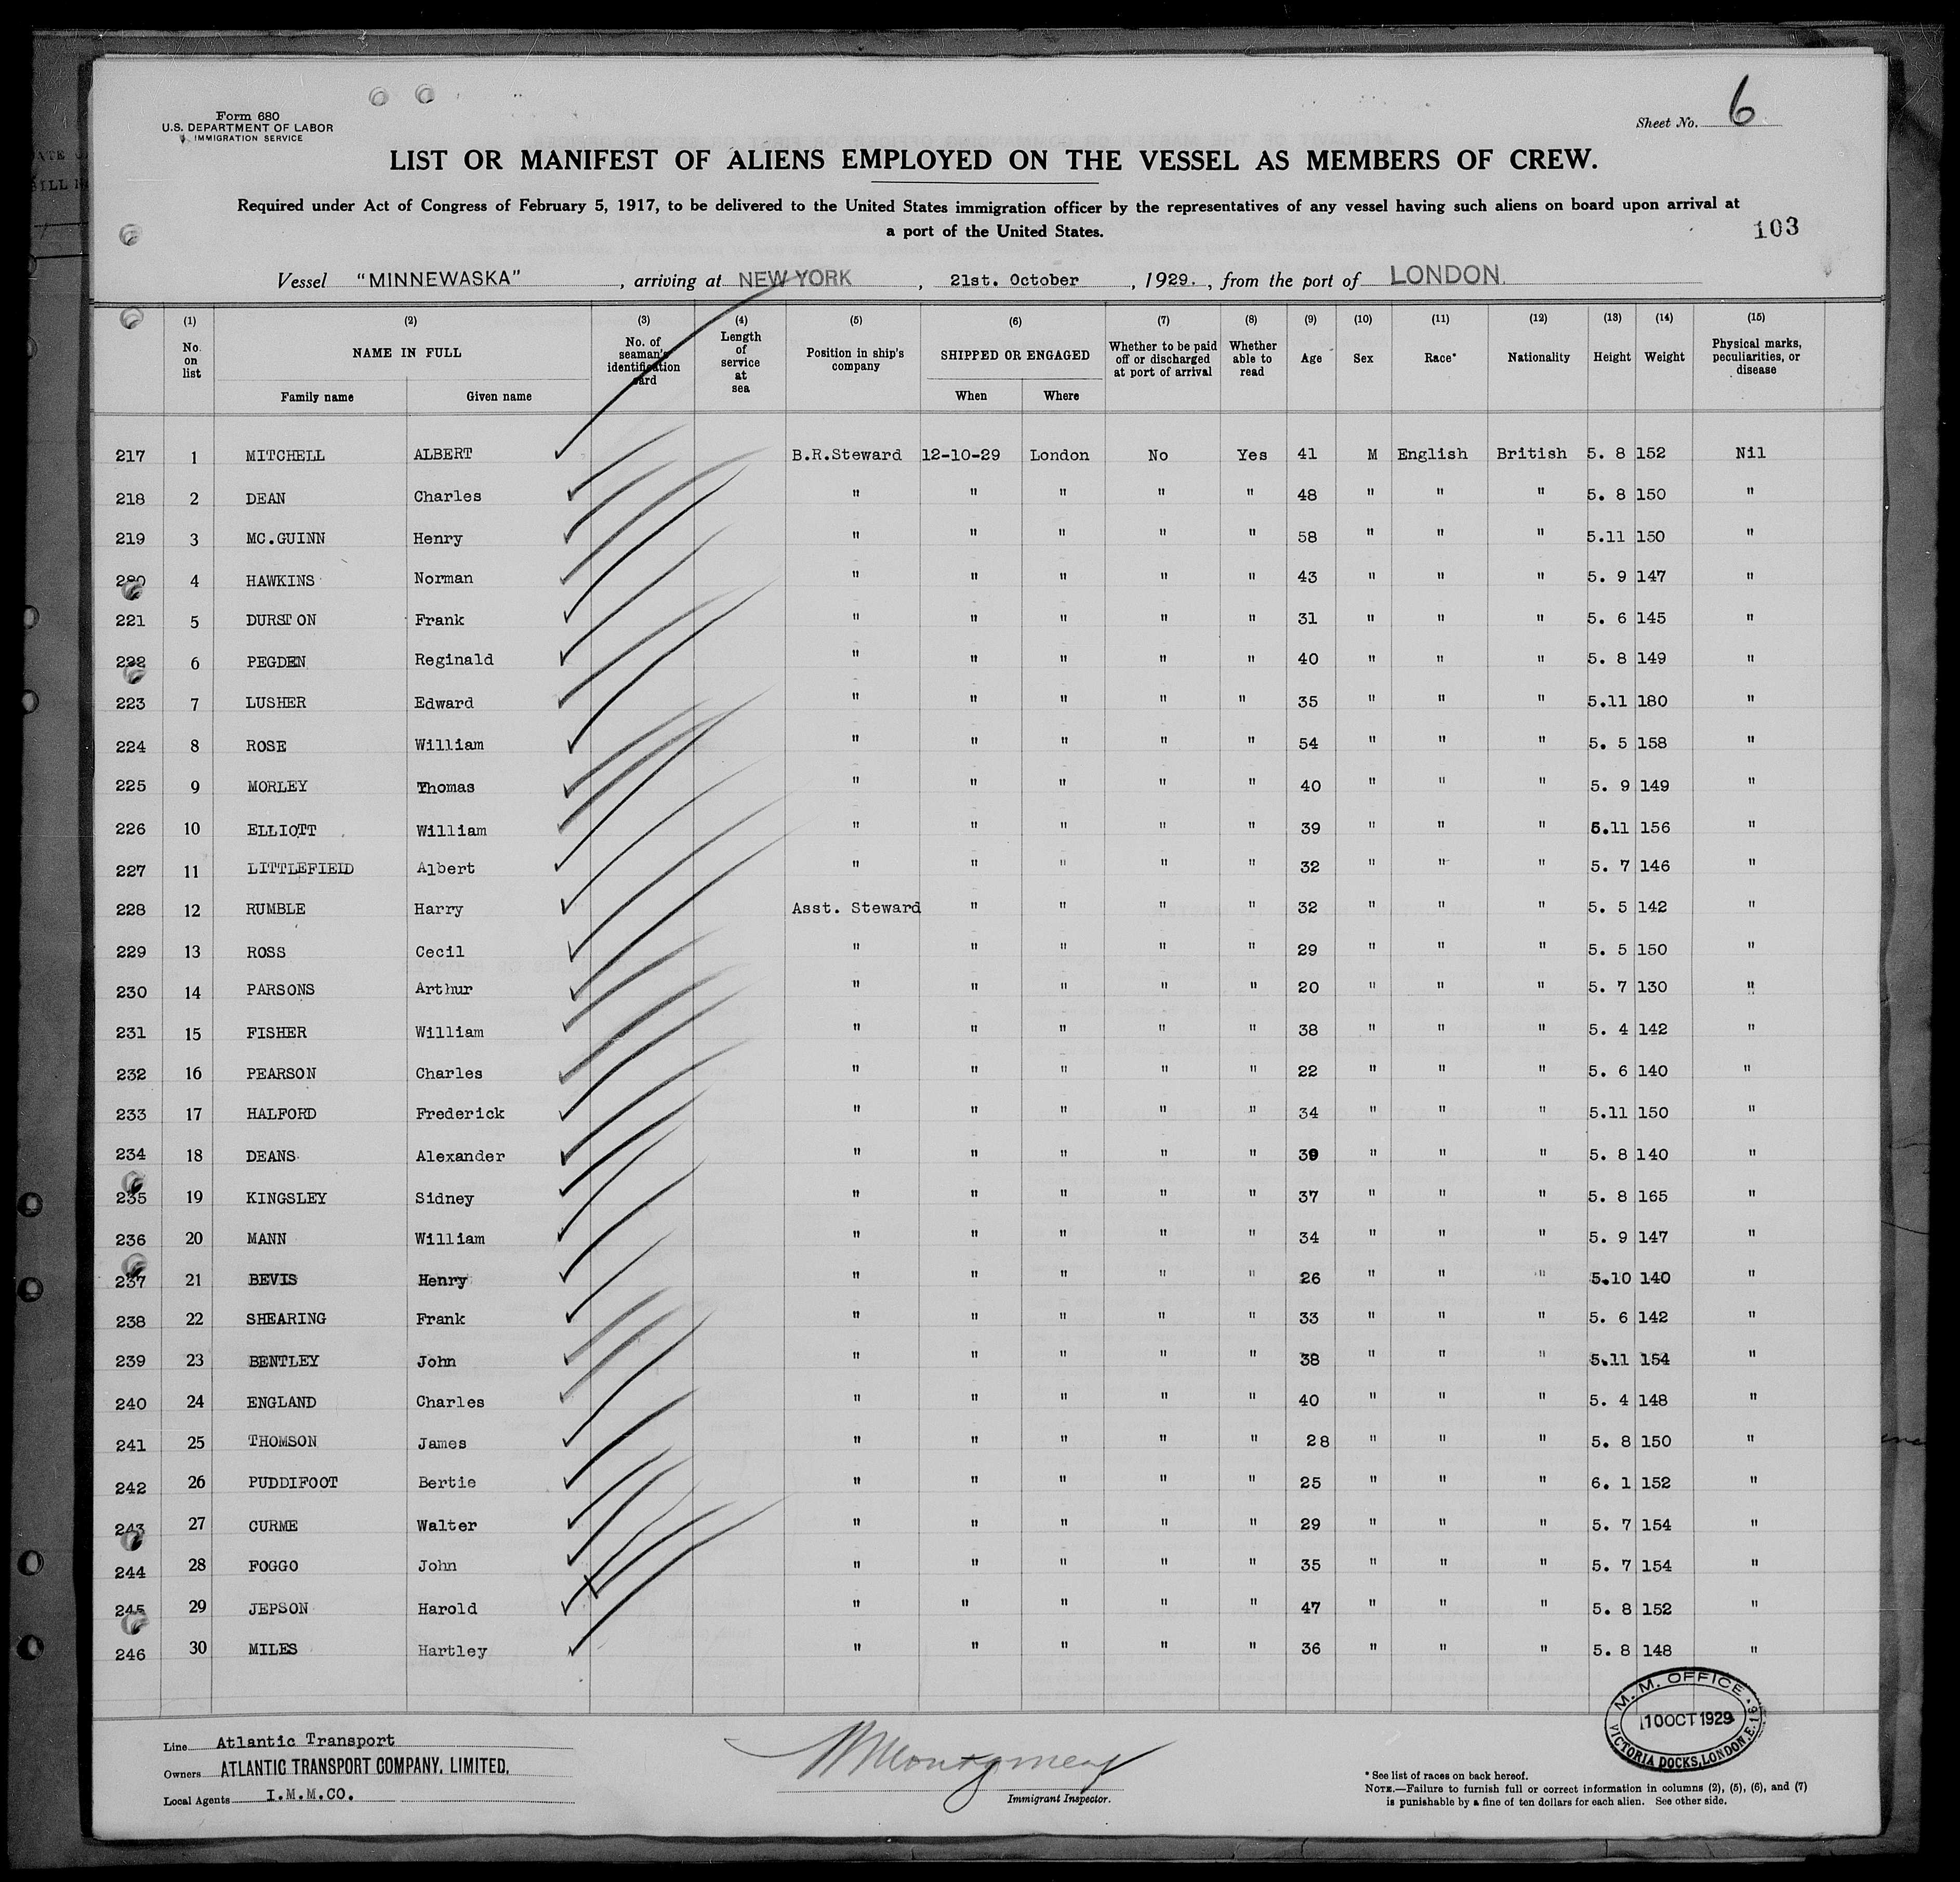 Form 680
U.S. DEPARTMENT OF LABOR
IMMIGRATION SERVICE
Sheet No. 6
LIST OR MANIFEST OF ALIENS EMPLOYED ON THE VESSEL AS MEMBERS OF CREW.
Required under Act of Congress of February 5, 1917, to be delivered to the United States immigration officer by the representatives of any vessel having such aliens on board upon arrival at
a port of the United States.
103
Vessel "MINNEWASKA", arriving at NEW YORK, 21st. October, 1929., from the port of LONDON.
(1) (2) (3) (4) (5) (6) (7) (8) (9) (10) (11) (12) (13) (14) (15)
No. on list NAME IN FULL No. of seaman's identification card Length of service at sea Position in ship's company SHIPPED OR ENGAGED Whether to be paid off or discharged at port of arrival Whether able to read Age Sex Race* Nationality Height Weight Physical marks, peculiarities, or disease
Family name Given name When Where
217 1 MITCHELL ALBERT B.R.Steward 12-10-29 London No Yes 41 M English British 5. 8 152 Nil
218 2 DEAN Charles " " " " " 48 " " " 5. 8 150 "
219 3 MC.GUINN Henry " " " " " 58 " " " 5.11 150 "
220 4 HAWKINS Norman " " " " " 43 " " " 5. 9 147 "
221 5 DURSTON Frank " " " " " 31 " " " 5. 6 145 "
222 6 PEGDEN Reginald " " " " " 40 " " " 5. 8 149 "
223 7 LUSHER Edward " " " " " 35 " " " 5.11 180 "
224 8 ROSE William " " " " " 54 " " " 5. 5 158 "
225 9 MORLEY Thomas " " " " " 40 " " " 5. 9 149 "
226 10 ELLIOTT William " " " " " 39 " " " 5.11 156 "
227 11 LITTLEFIELD Albert " " " " " 32 " " " 5. 7 146 "
228 12 RUMBLE Harry Asst. Steward " " " " 32 " " " 5. 5 142 "
229 13 ROSS Cecil " " " " " 29 " " " 5. 5 150 "
230 14 PARSONS Arthur " " " " " 20 " " " 5. 7 130 "
231 15 FISHER William " " " " " 38 " " " 5. 4 142 "
232 16 PEARSON Charles " " " " " 22 " " " 5. 6 140 "
233 17 HALFORD Frederick " " " " " 34 " " " 5.11 150 "
234 18 DEANS Alexander " " " " " 39 " " " 5. 8 140 "
235 19 KINGSLEY Sidney " " " " " 37 " " " 5. 8 165 "
236 20 MANN William " " " " " 34 " " " 5. 9 147 "
237 21 BEVIS Henry " " " " " 26 " " " 5.10 140 "
238 22 SHEARING Frank " " " " " 33 " " " 5. 6 142 "
239 23 BENTLEY John " " " " " 38 " " " 5.11 154 "
240 24 ENGLAND Charles " " " " " 40 " " " 5. 4 148 "
241 25 THOMSON James " " " " " 28 " " " 5. 8 150 "
242 26 PUDDIFOOT Bertie " " " " " 25 " " " 6. 1 152 "
243 27 CURME Walter " " " " " 29 " " " 5. 7 154 "
244 28 FOGGO John " " " " " 35 " " " 5. 7 154 "
245 29 JEPSON Harold " " " " " 47 " " " 5. 8 152 "
246 30 MILES Hartley " " " " " 36 " " " 5. 8 148 "
M. M. OFFICE
10 OCT 1929
VICTORIA DOCKS, LONDON.E.16
Line Atlantic Transport
Owners ATLANTIC TRANSPORT COMPANY, LIMITED,
Local Agents I.M.M.CO.
Montgomery
Immigrant Inspector.
* See list of races on back hereof.
NOTE.—Failure to furnish full or correct information in columns (2), (5), (6), and (7)
is punishable by a fine of ten dollars for each alien. See other side.